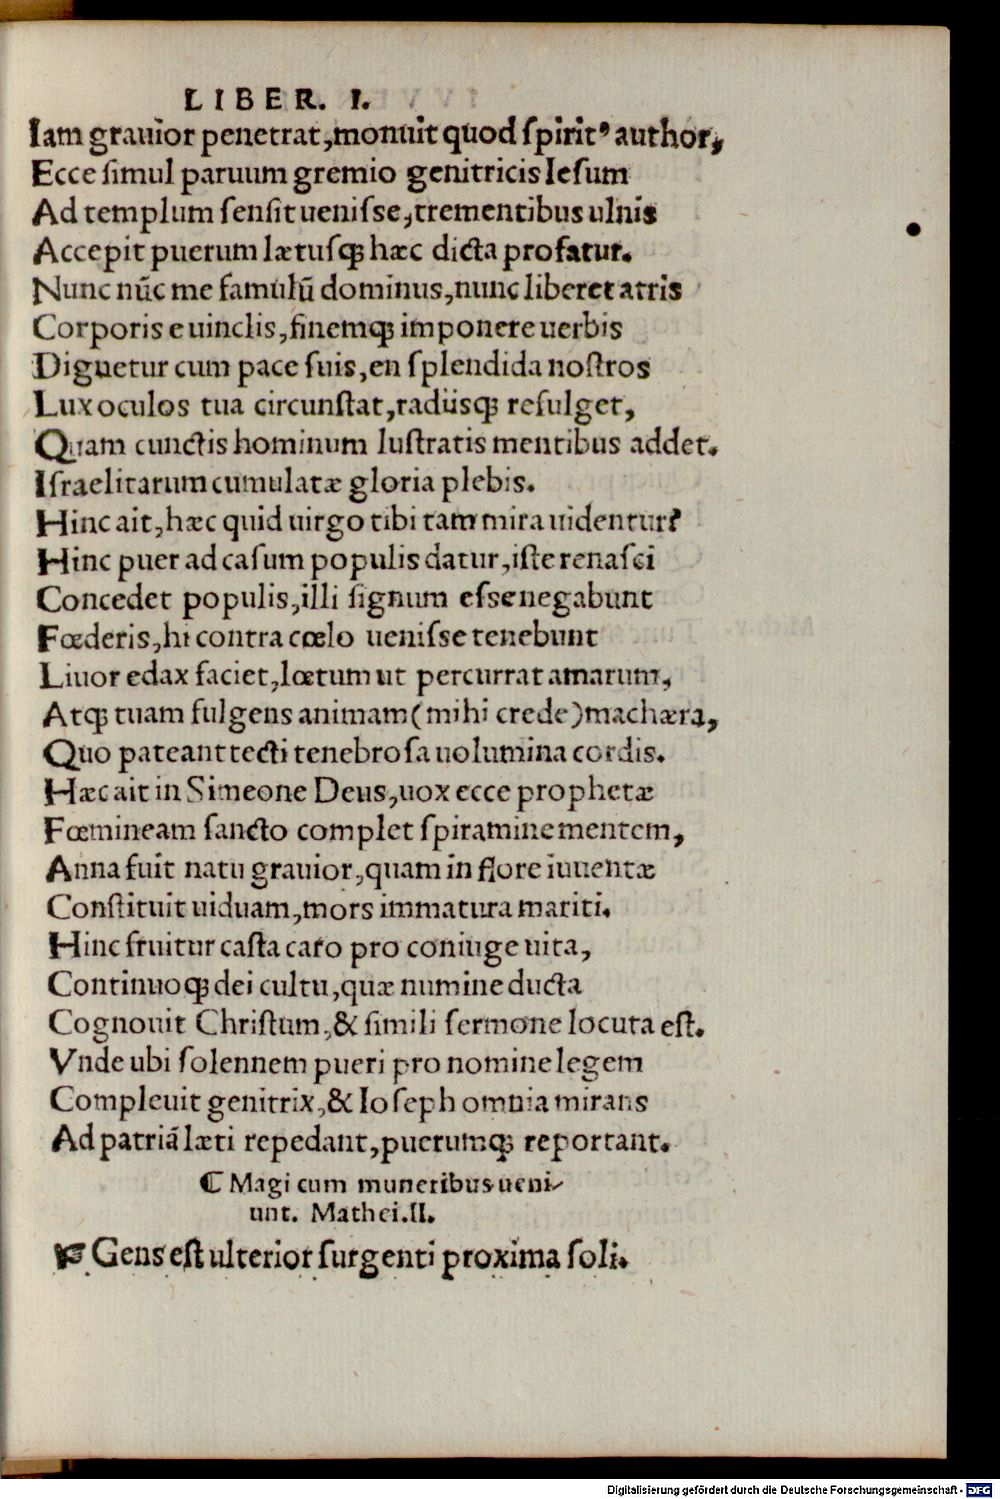 LIBER. I.
Iam grauior penetrat,monuit quod ſpiritꝰ author,
Ecce ſimul paruum gremio genitricis Ieſum
Ad templum ſenſit ueniſse,trementibus ulnis
Accepit puerum lætuſꝗ hæc dicta profatur.
Nunc nũc me famulũ dominus,nunc liberet atris
Corporis e uinclis,finemꝗ imponere uerbis
Dignetur cum pace ſuis,en ſplendida noſtros
Lux oculos tua circunſtat,radiisꝗ refulget,
Quam cunctis hominum luſtratis mentibus addet.
Iſraelitarum cumulatæ gloria plebis.
Hinc ait,hæc quid uirgo tibi tam mira uidentur?
Hinc puer ad caſum populis datur,iſte renaſci
Concedet populis,illi ſignum eſse negabunt
Fœderis,hi contra cœlo ueniſse tenebunt
Liuor edax faciet,lœtum ut percurrat amarum,
Atꝗ tuam fulgens animam(mihi crede)machæra,
Quo pateant tecti tenebroſa uolumina cordis.
Hæc ait in Simeone Deus,uox ecce prophetæ
Fœmineam ſancto complet ſpiramine mentem,
Anna fuit natu grauior,quam in flore iuuentæ
Conſtituit uiduam,mors immatura mariti.
Hinc fruitur caſta caro pro coniuge uita,
Continuoꝗ dei cultu,quæ numine ducta
Cognouit Chriſtum,& ſimili ſermone locuta eſt.
Vnde ubi ſolennem pueri pro nomine legem
Compleuit genitrix,& Ioſeph omnia mirans
Ad patriã læti repedant,puerumꝗ reportant.
⸿ Magi cum muneribus ueni⸗
unt. Mathei.II.
☞ Gens eſt ulterior ſurgenti proxima ſoli.
Digitalisierung gefördert durch die Deutsche Forschungsgemeinschaft - DFG